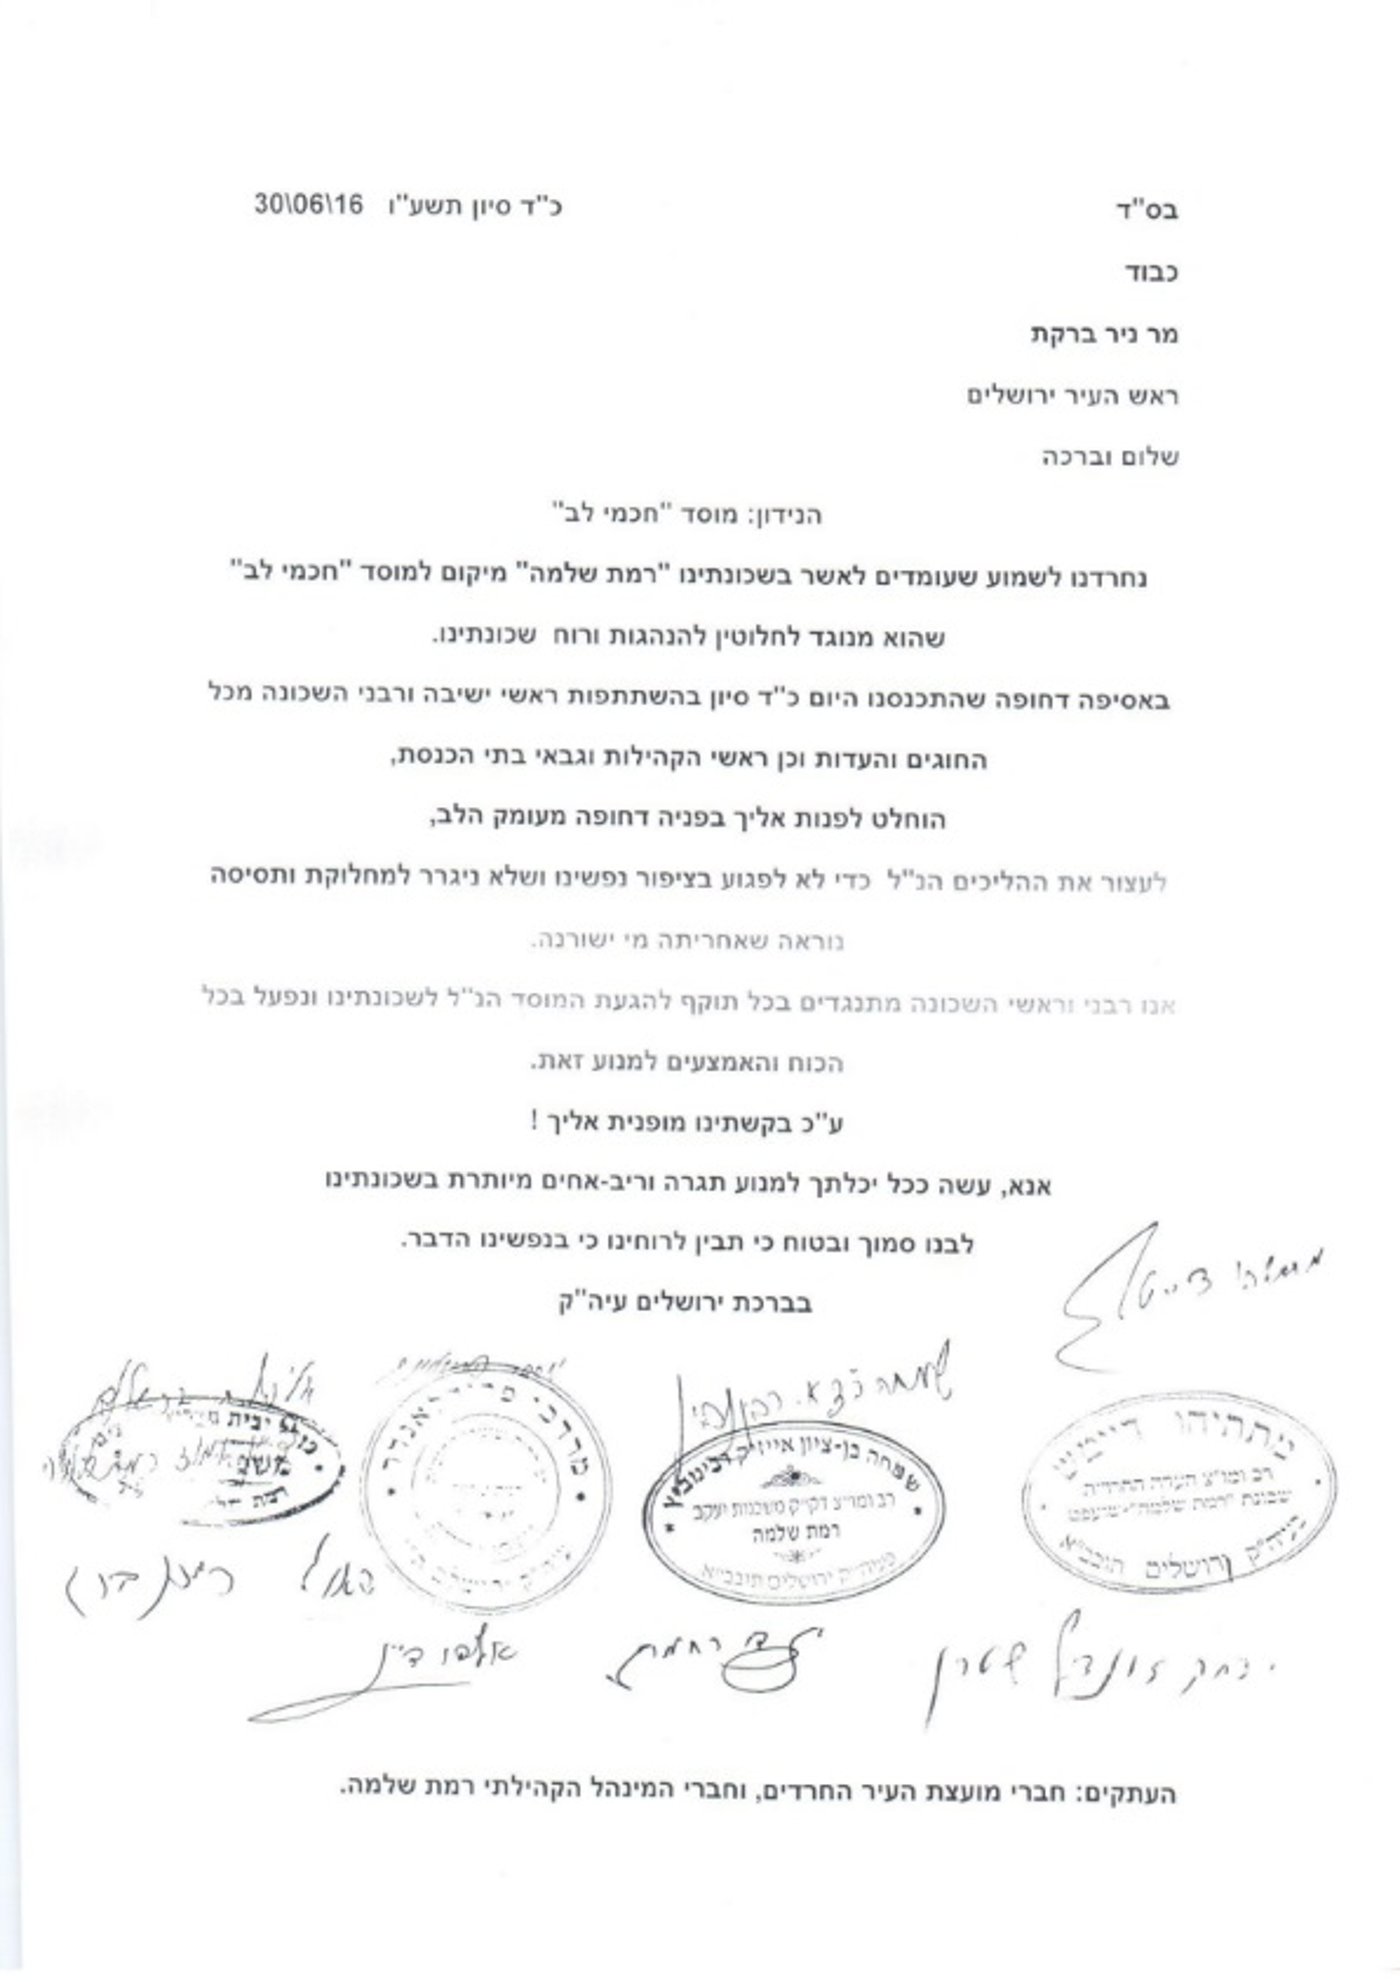 בס"ד
כ"ד סיון תשע"ו 30\06\16
כבוד
מר ניר ברקת
ראש העיר ירושלים
שלום וברכה
הנידון: מוסד "חכמי לב"
נחרדנו לשמוע שעומדים לאשר בשכונתינו "רמת שלמה" מיקום למוסד "חכמי לב"
שהוא מנוגד לחלוטין להנהגות ורוח שכונתינו.
באסיפה דחופה שהתכנסנו היום כ"ד סיון בהשתתפות ראשי ישיבה ורבני השכונה מכל
החוגים והעדות וכן ראשי הקהילות וגבאי בתי הכנסת,
הוחלט לפנות אליך בפניה דחופה מעומק הלב,
לעצור את ההליכים הנ"ל כדי לא לפגוע בציפור נפשינו ושלא ניגרר למחלוקת ותסיסה
נוראה שאחריתה מי ישורנה.
אנו רבני וראשי השכונה מתנגדים בכל תוקף להגעת המוסד הנ"ל לשכונתינו ונפעל בכל
הכוח והאמצעים למנוע זאת.
ע"כ בקשתינו מופנית אליך !
אנא, עשה ככל יכלתך למנוע תגרה וריב-אחים מיותרת בשכונתינו
לבנו סמוך ובטוח כי תבין לרוחינו כי בנפשינו הדבר.
בברכת ירושלים עיה"ק
מתתיהו דייטש
מתתיהו דייטש
רב ומו"צ העדה החרדית
שכונת "רמת שלמה"-שועפט
עיה"ק ירושלים תובב"א
שמחה בן-ציון אייזיק רבינוביץ
רב ומו"צ דק"ק משכנות יעקב
רמת שלמה
פעיה"ק ירושלים תובב"א
מרדכי
רמת
יצחק זונדל שטרן
העתקים: חברי מועצת העיר החרדים, וחברי המינהל הקהילתי רמת שלמה.